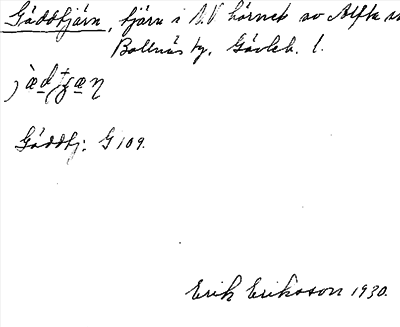 Gäddtjärn, tjärn i N.V hörnet av Alfta sn
Bollnäs tg. Gävleb. l.
Gäddtj: G 109.
Erik Eriksson 1930.